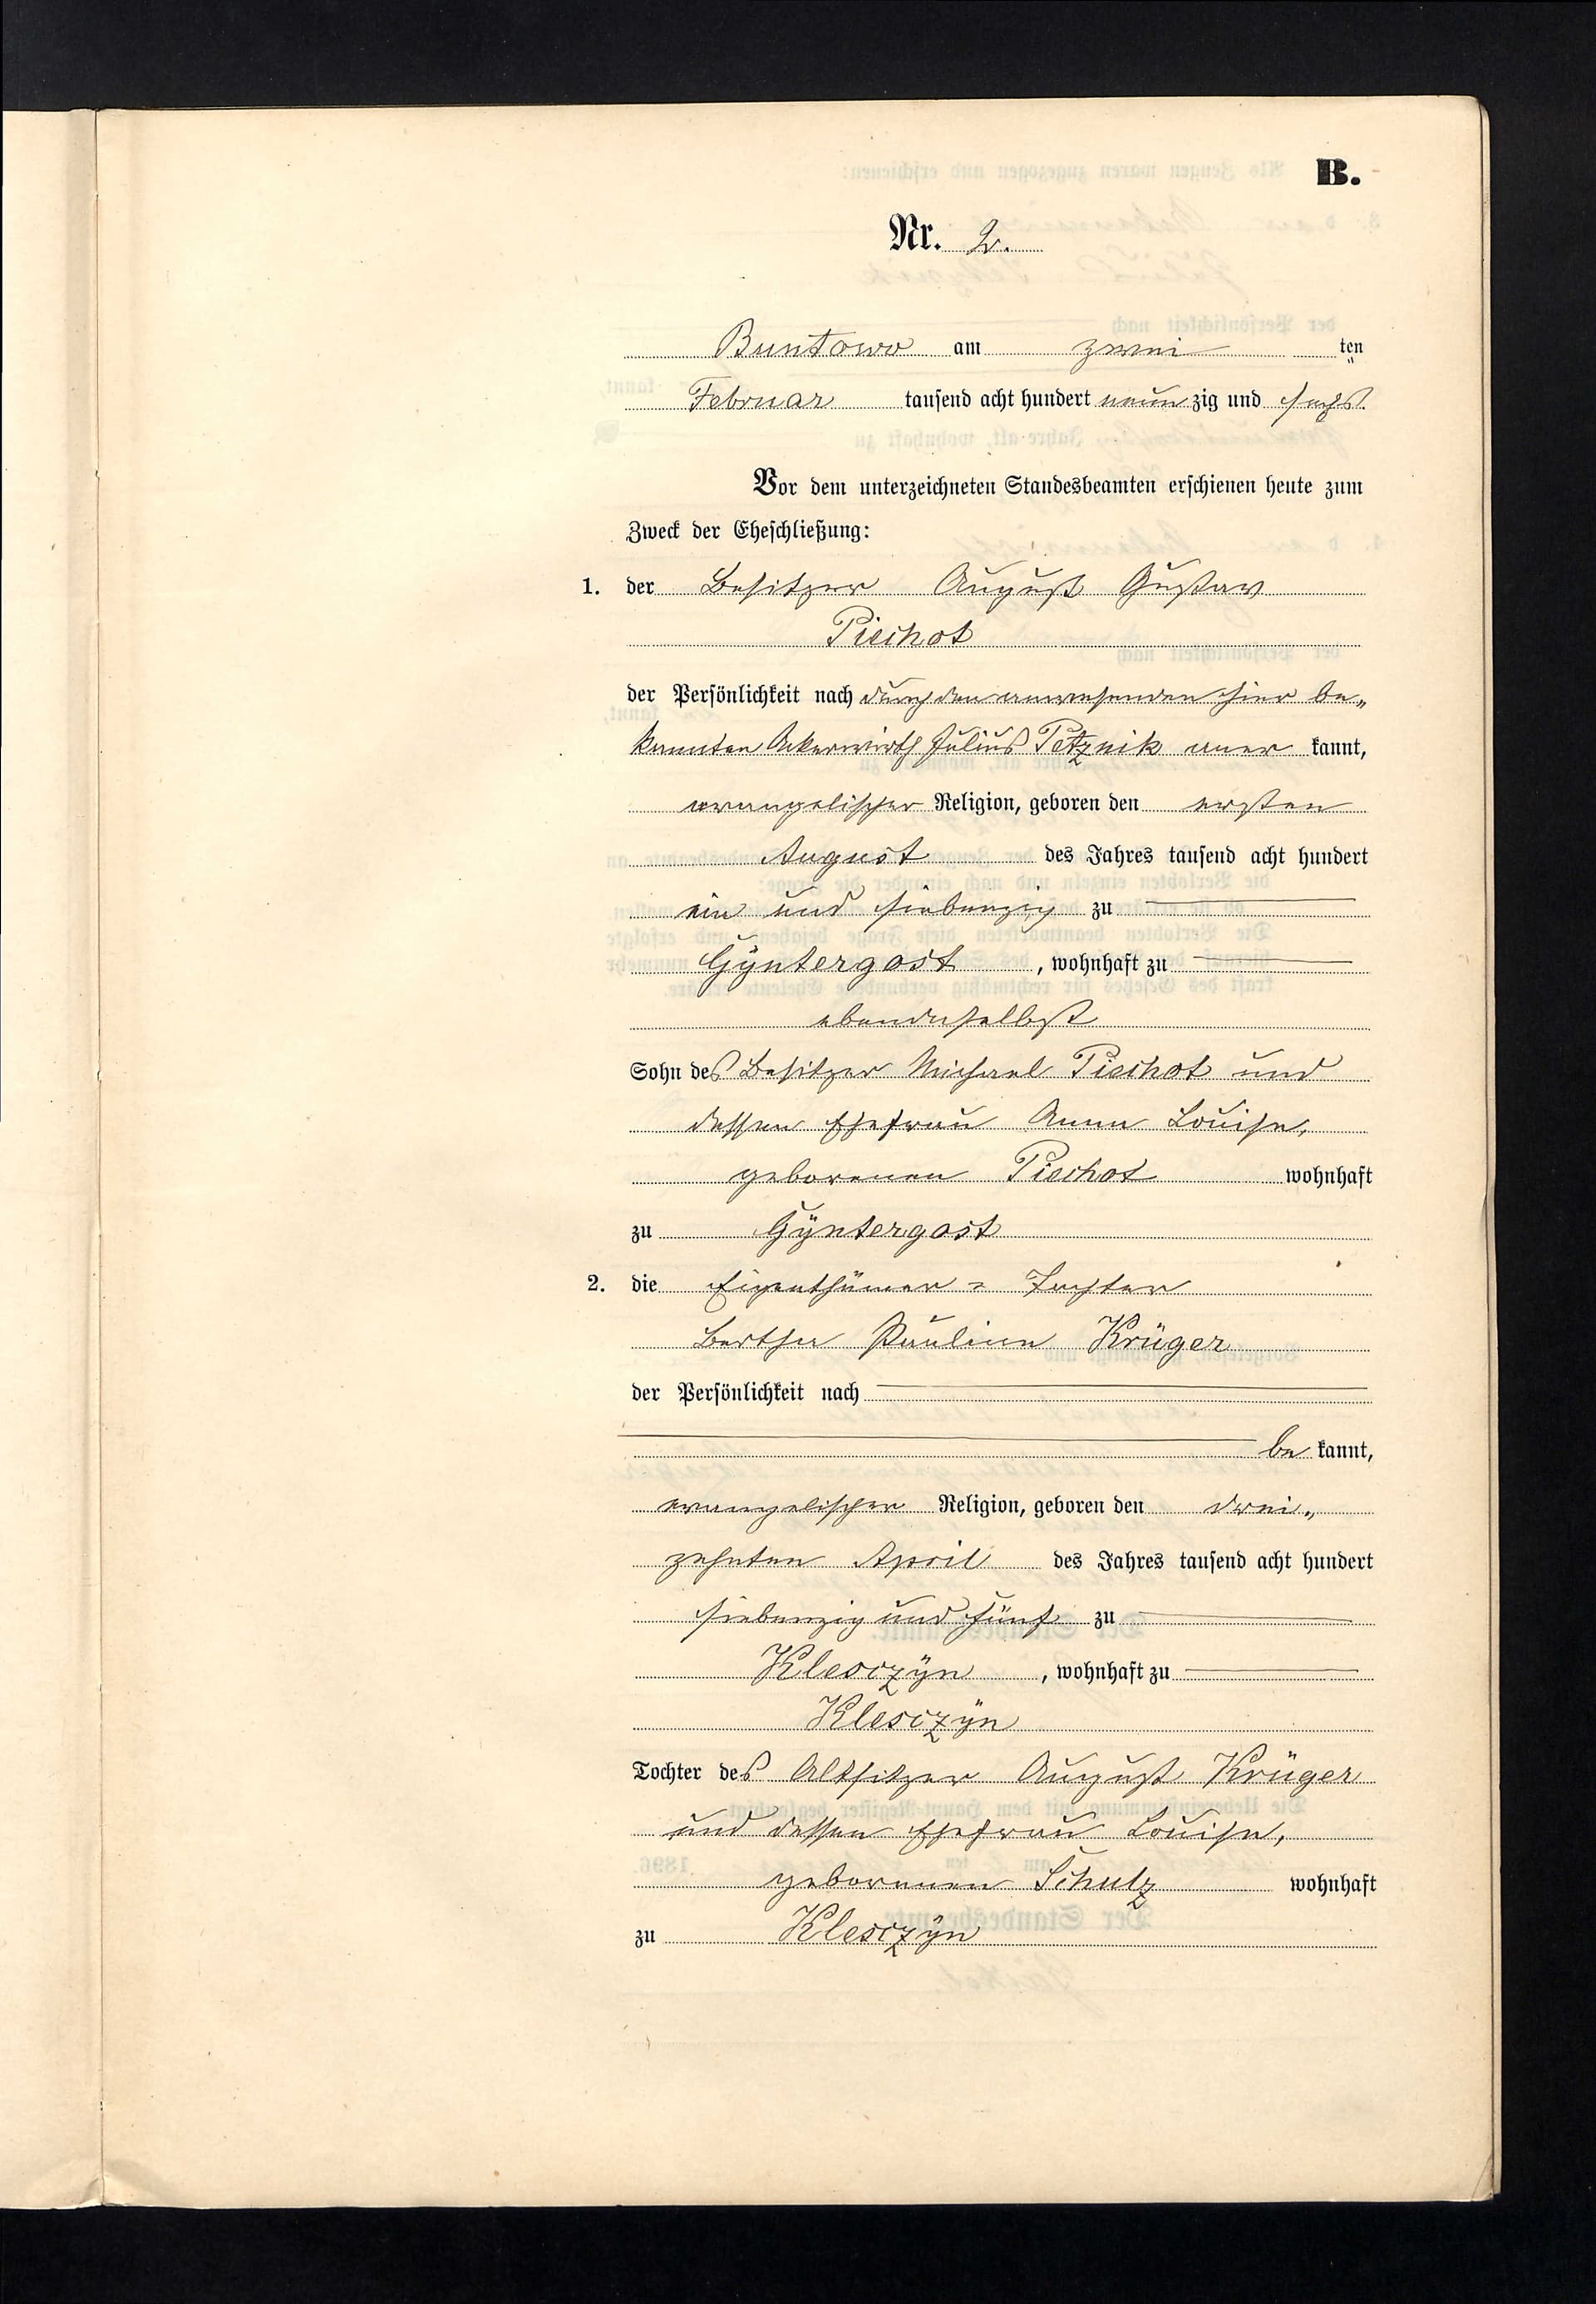 B.
Nr. 2.
Buntowo am zwei ten
Februar tausend acht hundert neun zig und sechs.
Vor dem unterzeichneten Standesbeamten erschienen heute zum
Zweck der Eheschließung:
1. der Besitzer August Gustav
Piechot
der Persönlichkeit nach durch den anwesenden hier be„
kannten Ackerwirth Julius Petznik aner kannt,
evangelischer Religion, geboren den ersten
August des Jahres tausend acht hundert
ein und siebenzig zu
Gÿntergost, wohnhaft zu
ebendaselbst
Sohn des Besitzer Michael Piechot und
dessen Ehefrau Anna Louise,
geborenen Piechot wohnhaft
zu Gÿntergost
2. die Eigenthümer = Tochter
Bertha Pauline Krüger
der Persönlichkeit nach
be kannt,
evangelischer Religion, geboren den drei„
zehnten April des Jahres tausend acht hundert
siebenzig und fünf zu
Klesczÿn, wohnhaft zu
Klesczÿn
Tochter des Altsitzer August Krüger
und dessen Ehefrau Louise,
geborenen Schulz wohnhaft
zu Klesczÿn